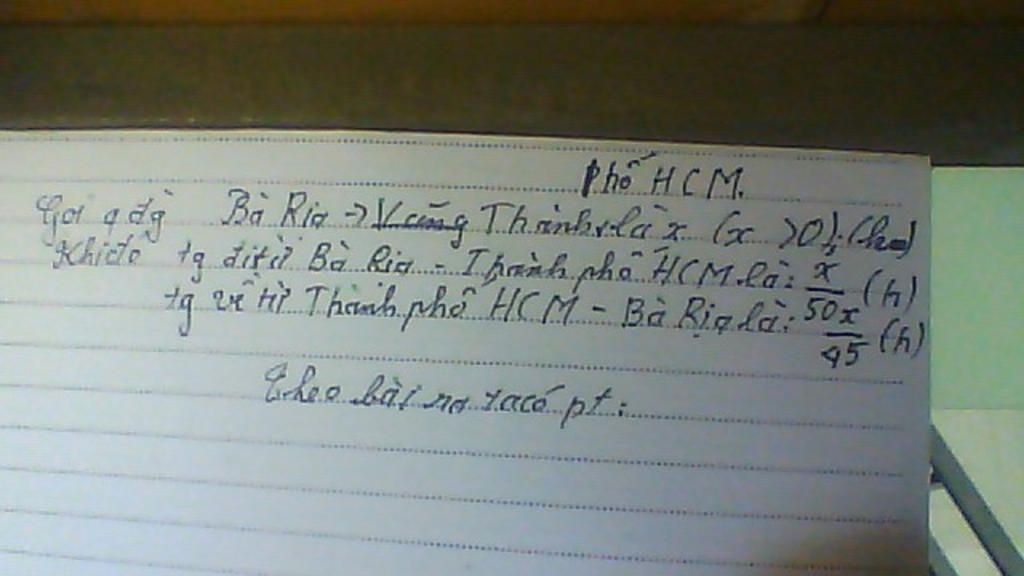 Phố HCM.
Gọi qđg Bà Rịa -> Thành là x (x >0);(km)
Khi đó tg đi từ Bà Rịa - Thành phố HCM là: x/50 (h)
tg về từ Thành phố HCM - Bà Rịa là: x/45 (h)
Theo bài ra ta có pt: